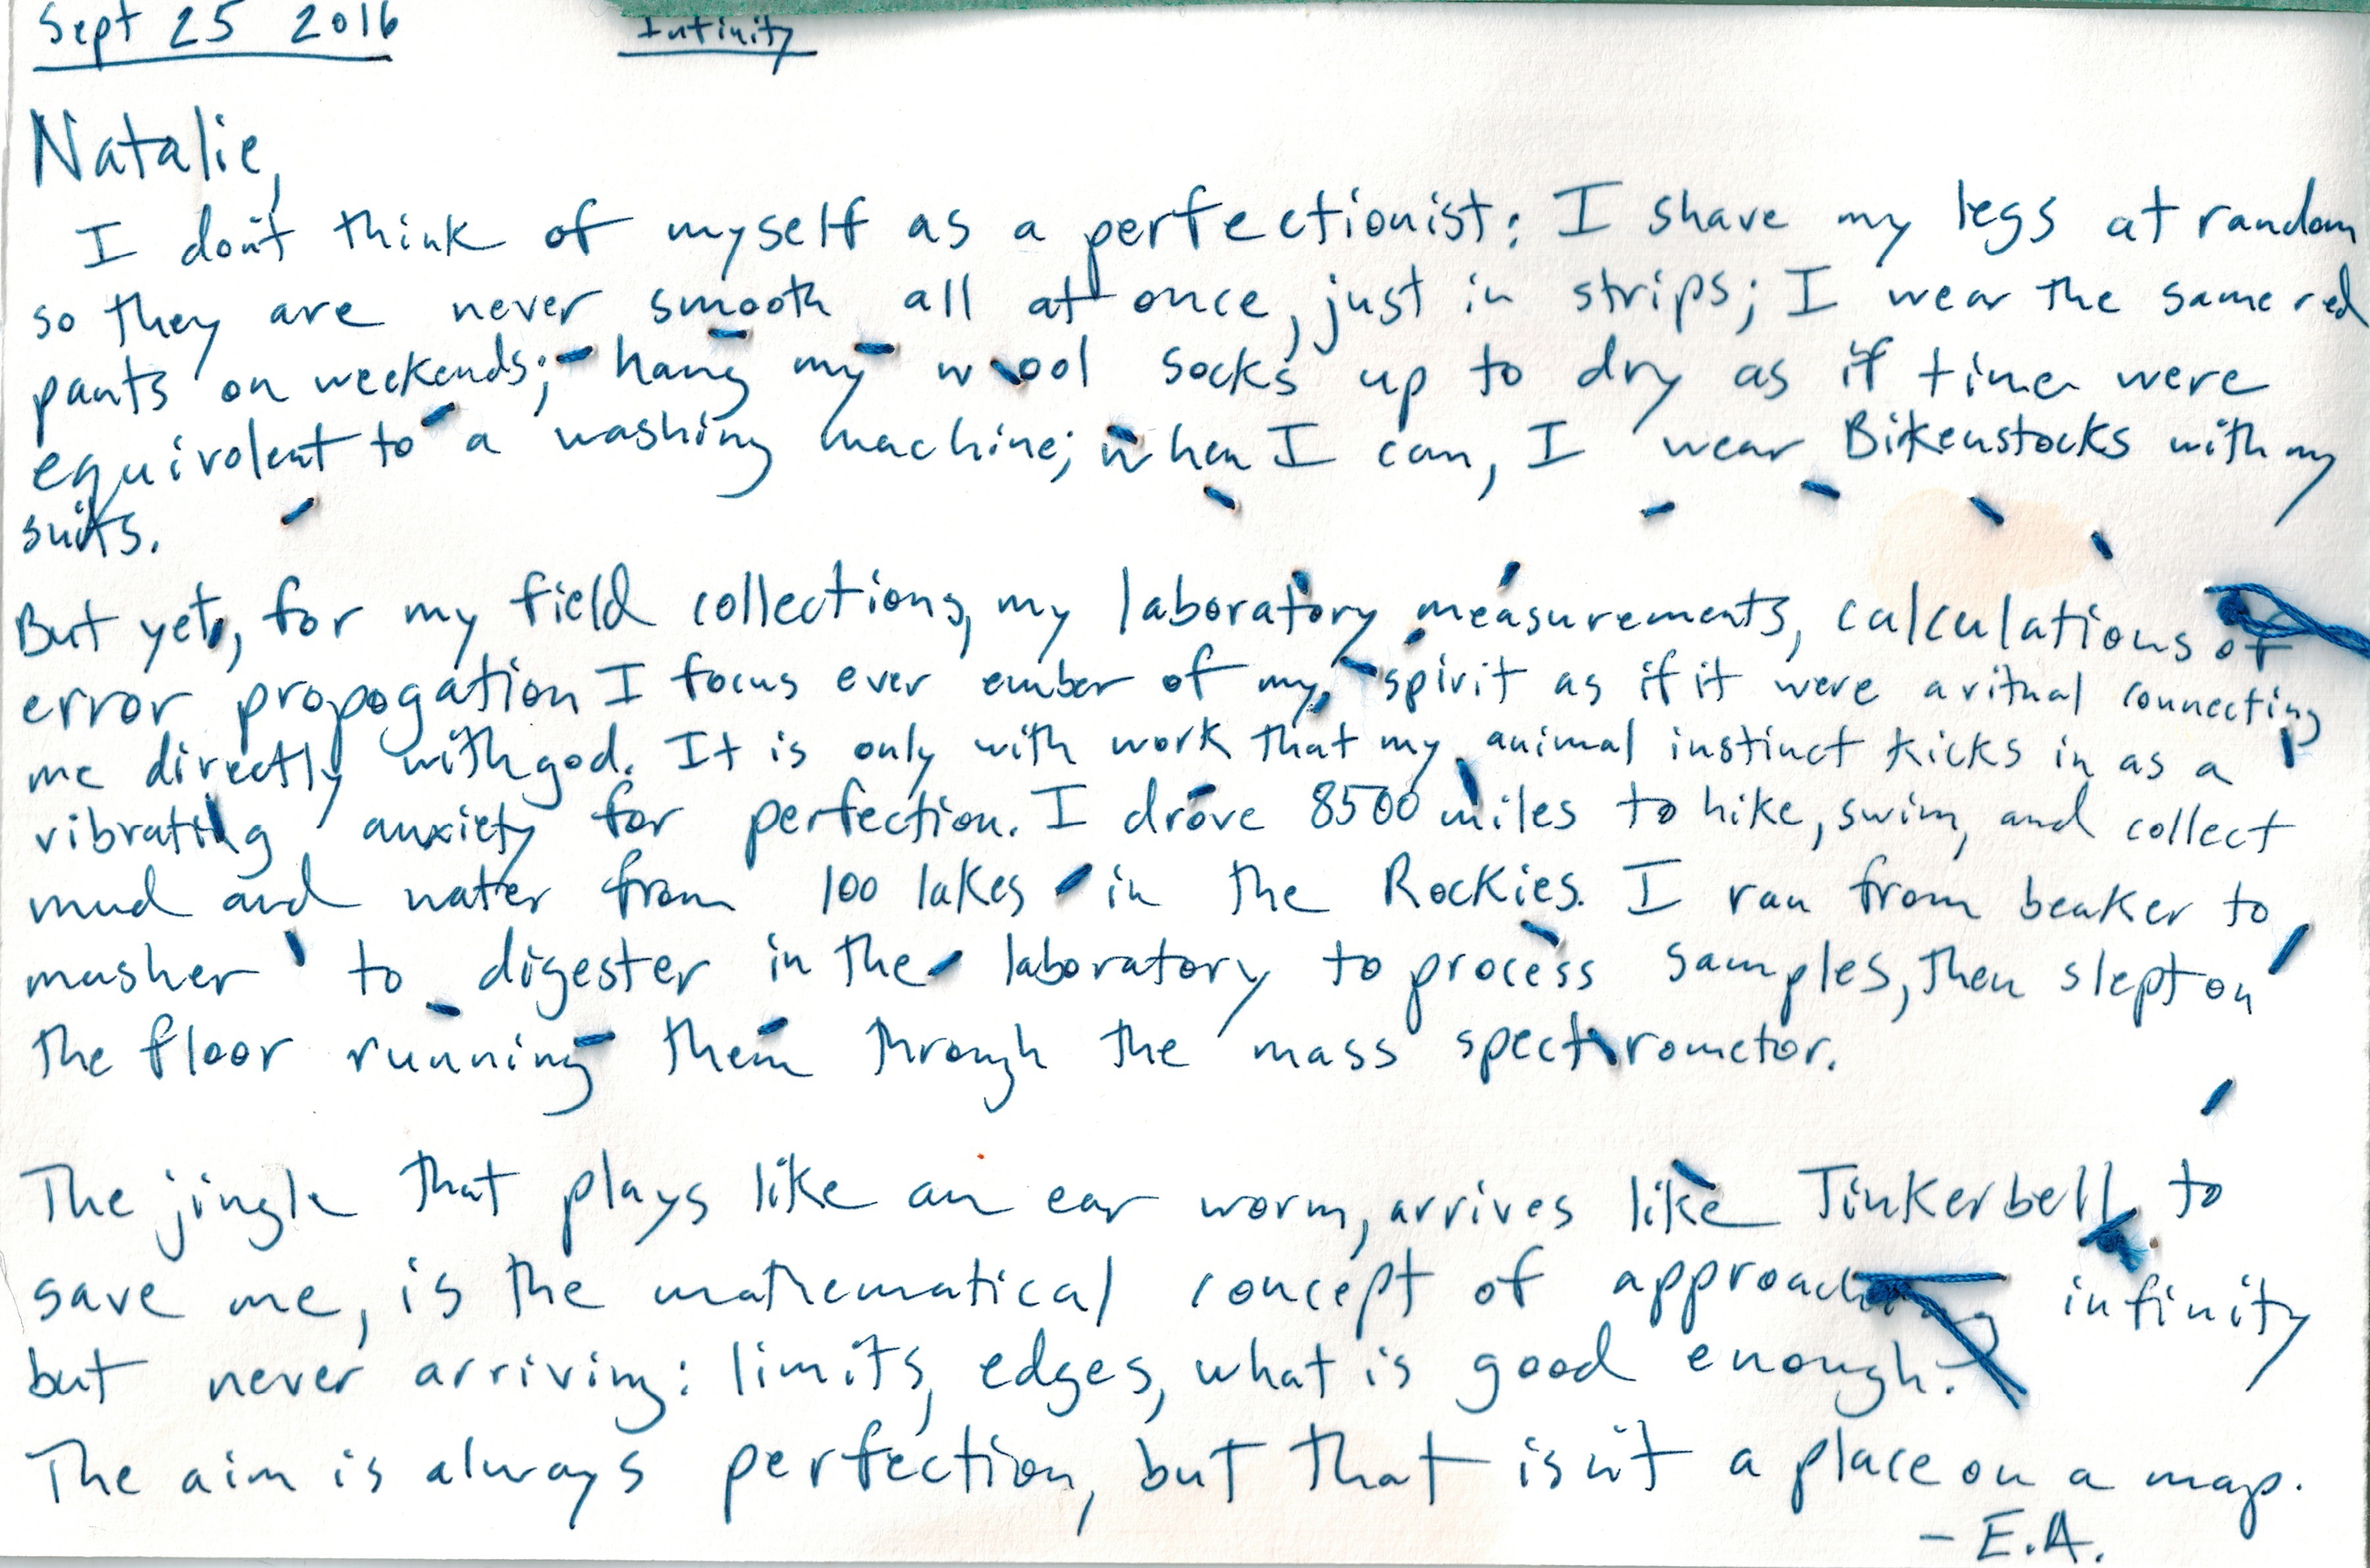 Sept 25 2016 Infinity
Natalie,
I don't think of myself as a perfectionist: I shave my legs at random
so they are never smooth all at once, just in strips; I wear the same red
pants on weekends; hang my wool socks up to dry as if time were
equivolent to a washing machine; when I can, I wear Bikenstocks with my
suits.
But yet, for my field collections, my laboratory measurements, calculations of
error propogation I focus ever ember of my spirit as if it were a ritual connecting
me directly with god. It is only with work that my animal instinct kicks in as a
vibrating anxiety for perfection. I drove 8500 miles to hike, swim, and collect
mud and water from 100 lakes in the Rockies. I ran from beaker to
masher to digester in the laboratory to process samples, then slept on
the floor running them through the mass spectrometor.
The jingle that plays like an ear worm, arrives like Tinkerbell to
save me, is the mathematical concept of approaching infinity
but never arriving: limits, edges, what is good enough?
The aim is always perfection, but that isn't a place on a map.
- E.A.